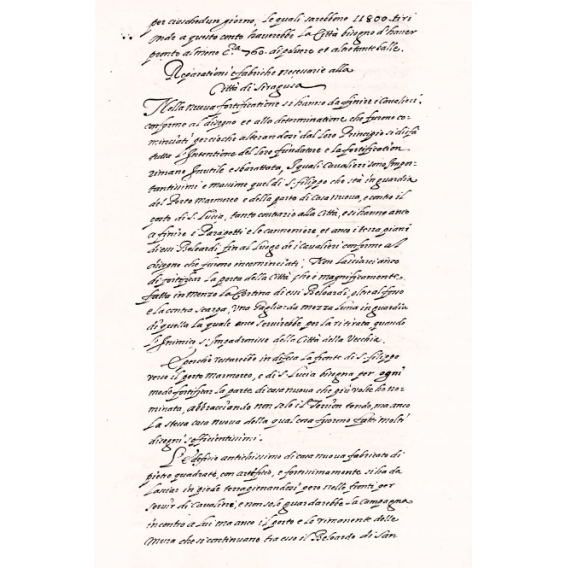 per ciaschedun giorno, le quali sarebbono 11800 tiri
onde a questo conto haverebbe la Città bisogno d'haver
pronto almeno C.a 760. di polvere et altretante balle.
Reparationi e fabriche necessarie alla
Città di Siragusa
Nella nuova fortificatione si hanno da finire i Cavalieri,
conforme al disegno et alla determinatione che furono co-
minciati percioche alterandosi dal loro Principio si disfà
tutto l'Intentione del loro fundatore e la fortification
rimane Inutile e sbarattata, I quali Cavalieri sono Impor-
tantissimi e massime quel di S. filippo che stà in guardia
del Porto Marmoreo e della parte di Casa nuova, e contro il
posto di S. Lucia, tanto contrario alla Città, e si hanno anco
a finire i Parapetti e le cannoniere, et anco i terra pieni
di essi Beloardi, fin al luogo de i Cavalieri conforme al
disegno che furono incominciati, Non lasciarsi anco
di fortificar la porta della Città che è magnificamente
fatta in menzo la Cortina di essi Beloardi, oltre al fosso
e la contra scarpa, una Gagliarda mezza luna in guardia
di quella la quale anco servirebbe per la ritirata quando
l'Inimico s'Impadronisse della Città della Vecchia.
E perche restarebbe in difesa la fronte di S. filippo
verso il porto marmoreo, e di S. Lucia bisogna per ogni
modo fortificar la parte di casa nuova che più volte ho no-
minata, abbracciando non solo il Terrion tondo, ma anco
la stessa casa nuova della qual cosa furono fatti molti
disegni sofficientissimi.
L'Edificio antichissimo di casa nuova fabricato di
pietre quadrate, con artificio, e fortissimamente si ha da
lasciar in piede terrapienandosi però nella fronti per
servir di Cavaliero, e non solo guardarebbe la Campagna
incontro a lui ma anco il porto e lo rimanente delle
Mura che si continuano tra esso il Beloardo di San